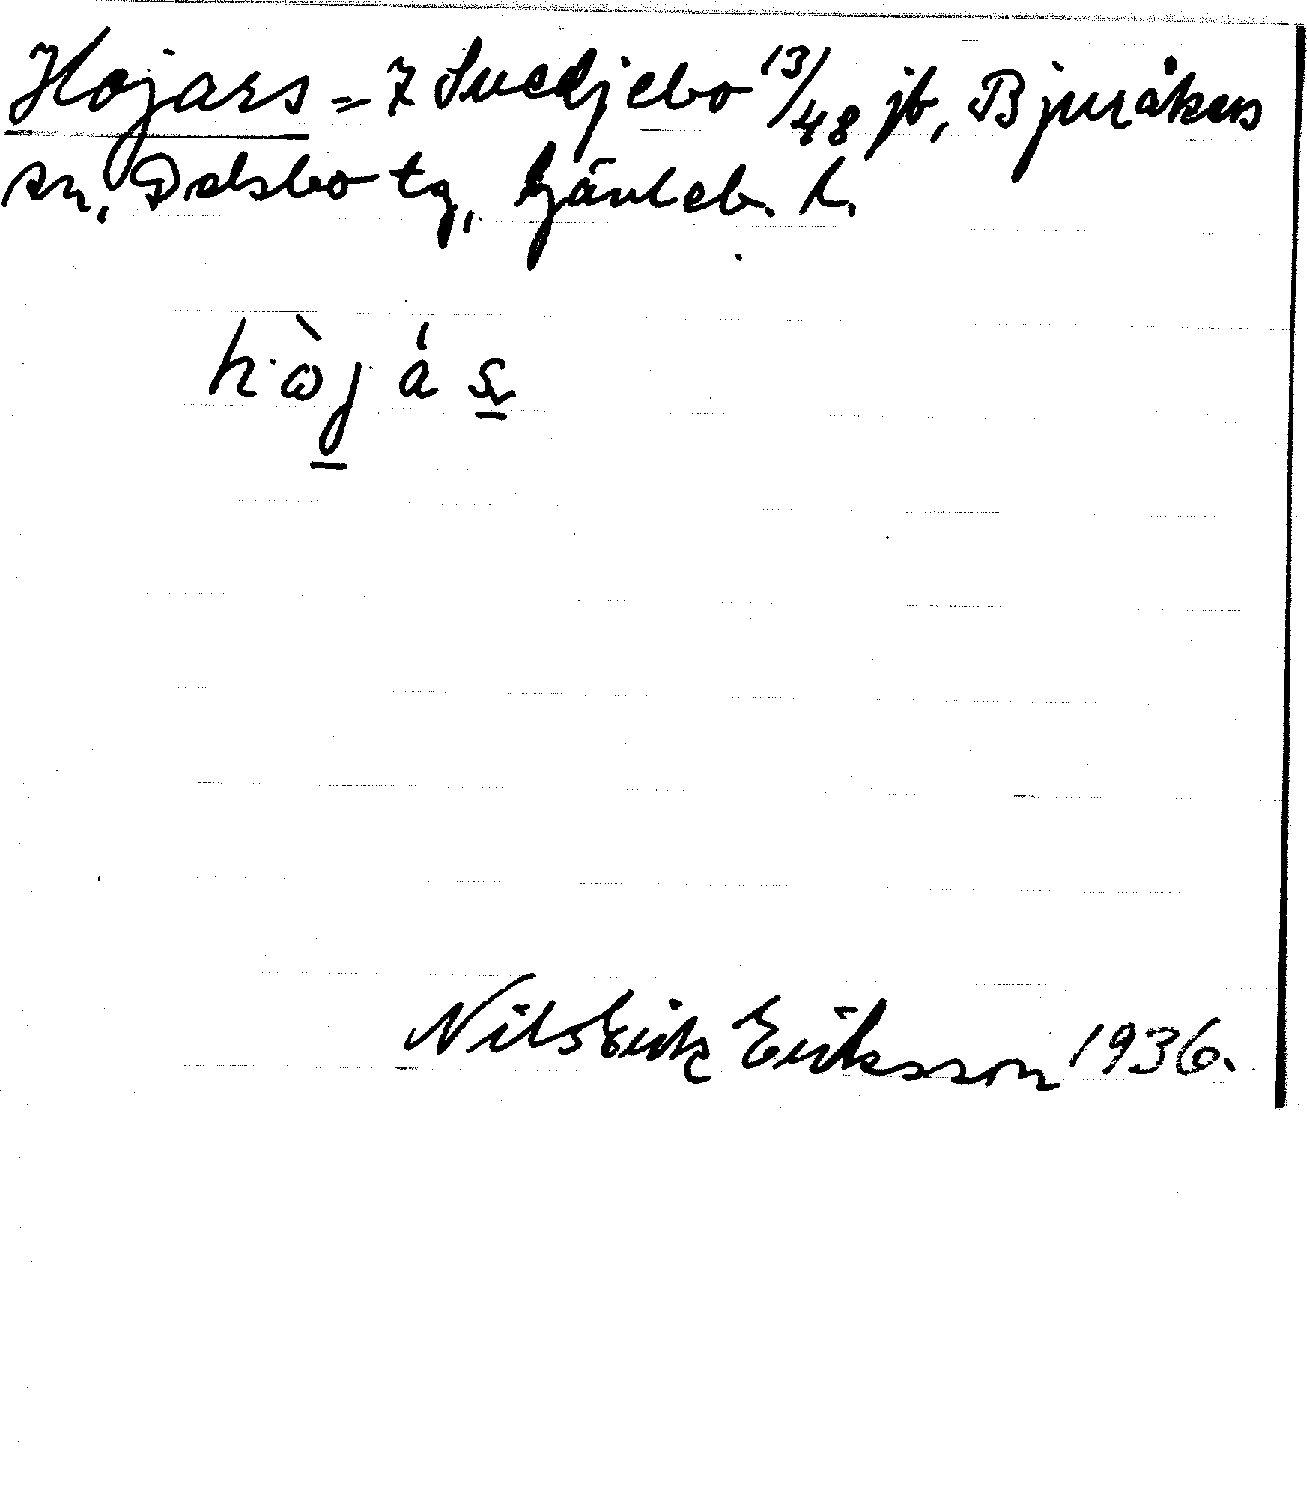 Hojars = 7 Svedjebo 13/48 jb, Bjuråkers
sn, Delsbo tg, Gävleb. l.
h.ὼj á s
Nils Erik Eriksson 1936.